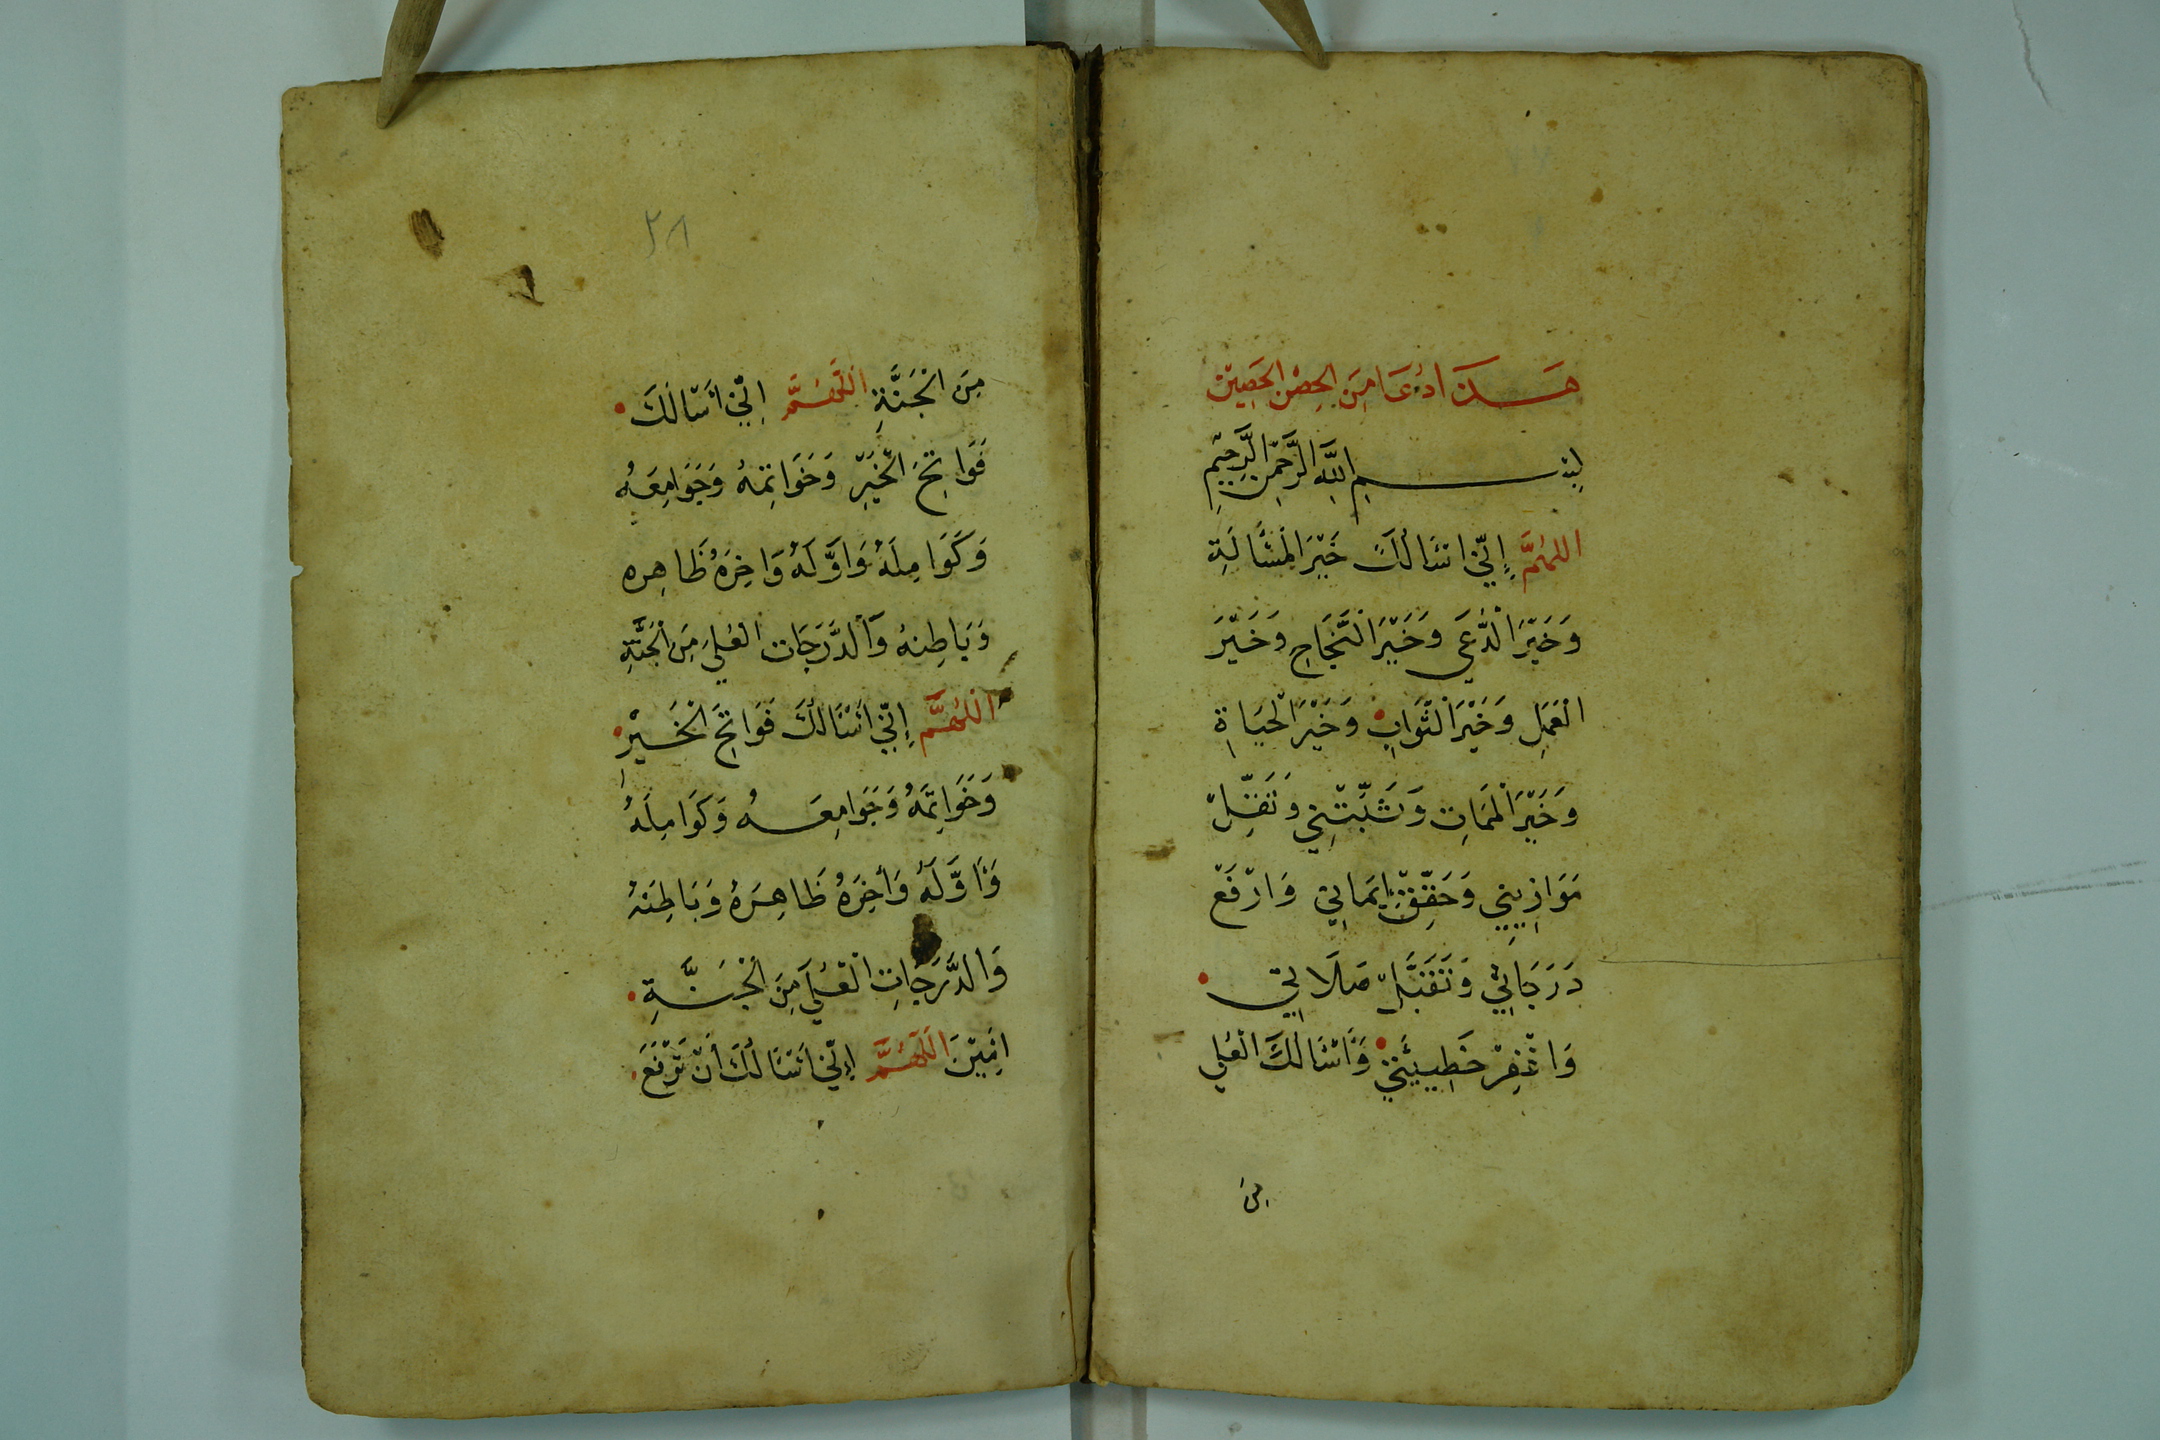 هَذَا دُعَا مِنَ الحِصْنِ الحَصِيْن
بِسْمِ اللَّهِ الرَّحْمَنِ الرَّحِيْمِ
اللهُمَّ إِنِّي اسْأَلُكَ خَيْرَ الْمَسْأَلَةِ
وَخَيْرَ الْدُّعَى وَخَيْرَ الْنَّجَاحِ وَخَيْرَ
الْعَمَلِ وَخَيْرَ الْثَّوَابِ وَخَيْرَ الْحَيَاةِ
وَخَيْرَ الْمَمَاتِ وَثَبِّتْنِي وَثَقِّلْ
مَوَازِيْنِي وَحَقِّقْ إِيمَانِي وَارْفَعْ
دَرَجَاتِي وَتَقَبَّلْ صَلَاتِي
وَاغْفِرْ خَطِيئَتِي وَأَسْأَلُكَ الْعُلى
مِنَ
٢٨
مِنَ الْجَنَّةِ اللَّهُمَّ إِنِّي أَسْأَلُكَ
فَوَاتِحَ الْخَيْرِ وَخَوَاتِمَهُ وَجَوَامِعَهُ
وَكَوَامِلَهُ وَاوَّلَهُ وَاخِرَهُ ظَاهِره
وَبَاطِنهُ وَالْدَّرَجَات الْعُلى مِنَ الْجَنَّةِ
اللهُمَّ إِنِّي أَسْأَلُكَ فَوَاتِحَ الْخَيْرِ
وَخَوَاتِمَهُ وَجَوَامِعَهُ وَكَوَامِلَهُ
وَأَوَّلَهُ وَأخِرَهُ ظَاهِرَهُ وَبَاطِنَهُ
وَالدَّرَجَاتِ الْعُلَى مِنَ الْجَنَّةِ
امِيْنَ اللَّهُمَّ إِنِّي أَسْأَلُكَ أَنْ تَرْفَعَ